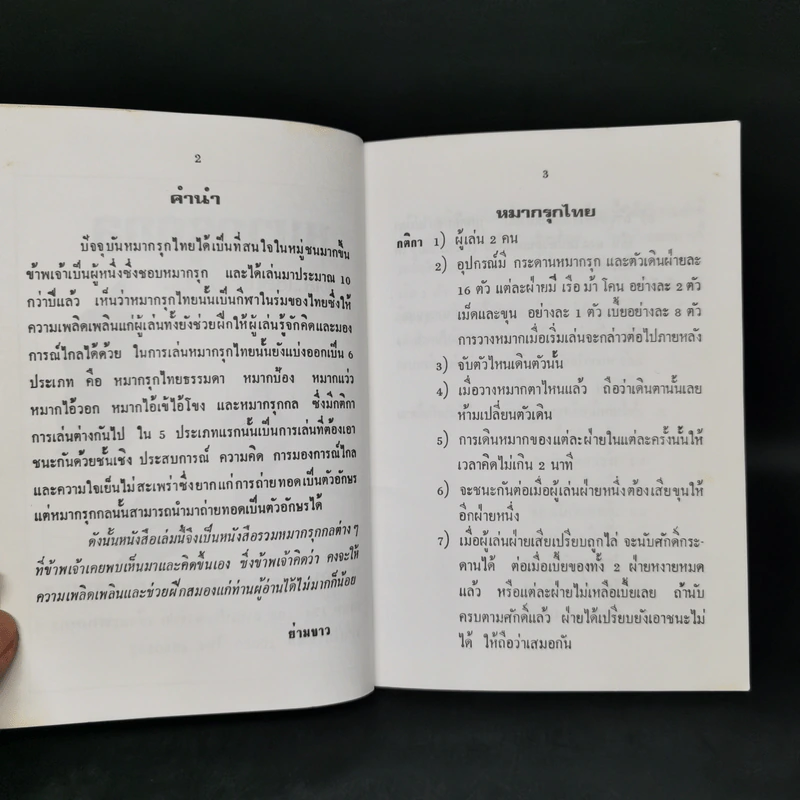 2
คำนำ
ปัจจุบันหมากรุกไทยได้เป็นที่สนใจในหมู่ชนมากขึ้น
ข้าพเจ้าเป็นผู้หนึ่งซึ่งชอบหมากรุก และได้เล่นมาประมาณ 10
กว่าปีแล้ว เห็นว่าหมากรุกไทยนั้นเป็นกีฬาในร่มของไทยซึ่งให้
ความเพลิดเพลินแก่ผู้เล่นทั้งยังช่วยฝึกให้ผู้เล่นรู้จักคิดและมอง
การณ์ไกลได้ด้วย ในการเล่นหมากรุกไทยนั้นยังแบ่งออกเป็น 6
ประเภท คือ หมากรุกไทยธรรมดา หมากป้อง หมากแว่ว
หมากไอ้วอก หมากไอ้เข้ไอ้โขง และหมากรุกกล ซึ่งมีกติกา
การเล่นต่างกันไป ใน 5 ประเภทแรกนั้นเป็นการเล่นที่ต้องเอา
ชนะกันด้วยชั้นเชิง ประสบการณ์ ความคิด การมองการณ์ไกล
และความใจเย็นไม่สะเพร่าซึ่งยากแก่การถ่ายทอดเป็นตัวอักษร
แต่หมากรุกกลนั้นสามารถนำมาถ่ายทอดเป็นตัวอักษรได้
ดังนั้นหนังสือเล่มนี้จึงเป็นหนังสือรวมหมากรุกกลต่างๆ
ที่ข้าพเจ้าเคยพบเห็นมาและคิดขึ้นเอง ซึ่งข้าพเจ้าคิดว่า คงจะให้
ความเพลิดเพลินและช่วยฝึกสมองแก่ท่านผู้อ่านได้ไม่มากก็น้อย
ย่ามขาว
3
หมากรุกไทย
กติกา 1) ผู้เล่น 2 คน
2) อุปกรณ์มี กระดานหมากรุก และตัวเดินฝ่ายละ
16 ตัว แต่ละฝ่ายมี เรือ ม้า โคน อย่างละ 2 ตัว
เม็ดและขุน อย่างละ 1 ตัว เบี้ยอย่างละ 8 ตัว
การวางหมากเมื่อเริ่มเล่นจะกล่าวต่อไปภายหลัง
3) จับตัวไหนเดินตัวนั้น
4) เมื่อวางหมากตาไหนแล้ว ถือว่าเดินตานั้นเลย
ห้ามเปลี่ยนตัวเดิน
5) การเดินหมากของแต่ละฝ่ายในแต่ละครั้งนั้นให้
เวลาคิดไม่เกิน 2 นาที
6) จะชนะกันต่อเมื่อผู้เล่นฝ่ายหนึ่งต้องเสียขุนให้
อีกฝ่ายหนึ่ง
7) เมื่อผู้เล่นฝ่ายเสียเปรียบถูกไล่ จะนับศักดิ์กระ-
ดานได้ ต่อเมื่อเบี้ยของทั้ง 2 ฝ่ายหงายหมด
แล้ว หรือแต่ละฝ่ายไม่เหลือเบี้ยเลย ถ้านับ
ครบตามศักดิ์แล้ว ฝ่ายได้เปรียบยังเอาชนะไม่
ได้ ให้ถือว่าเสมอกัน